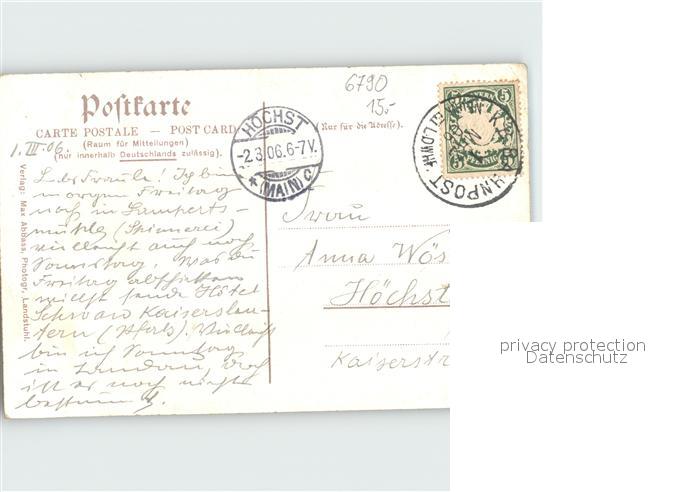 6790
15.-
Postkarte
CARTE POSTALE — POST CARD
(Raum für Mitteilungen)
(nur innerhalb Deutschlands zulässig).
(Nur für die Adresse).
1. III. 06.
HÖCHST
-2.3.06.6-7V.
* (MAIN) C
5
BAHNPOST
Verlag: Max Abbass, Photogr., Landstuhl.
Liebe Fraule! Ich bin
morgen Freitag
noch in Lamperts-
mühle (Spinnerei)
vielleicht auch noch
Samstag. Was du
Freitag abschicken
willst sende Hôtel
Schwan Kaiserslau-
tern (Pfalz). Vielleicht
bin ich Sonntag
in Landau, doch
ist es noch nicht
bestimmt.
Frau
Anna Wös
Höchst
Kaiserstr
privacy protection
Datenschutz